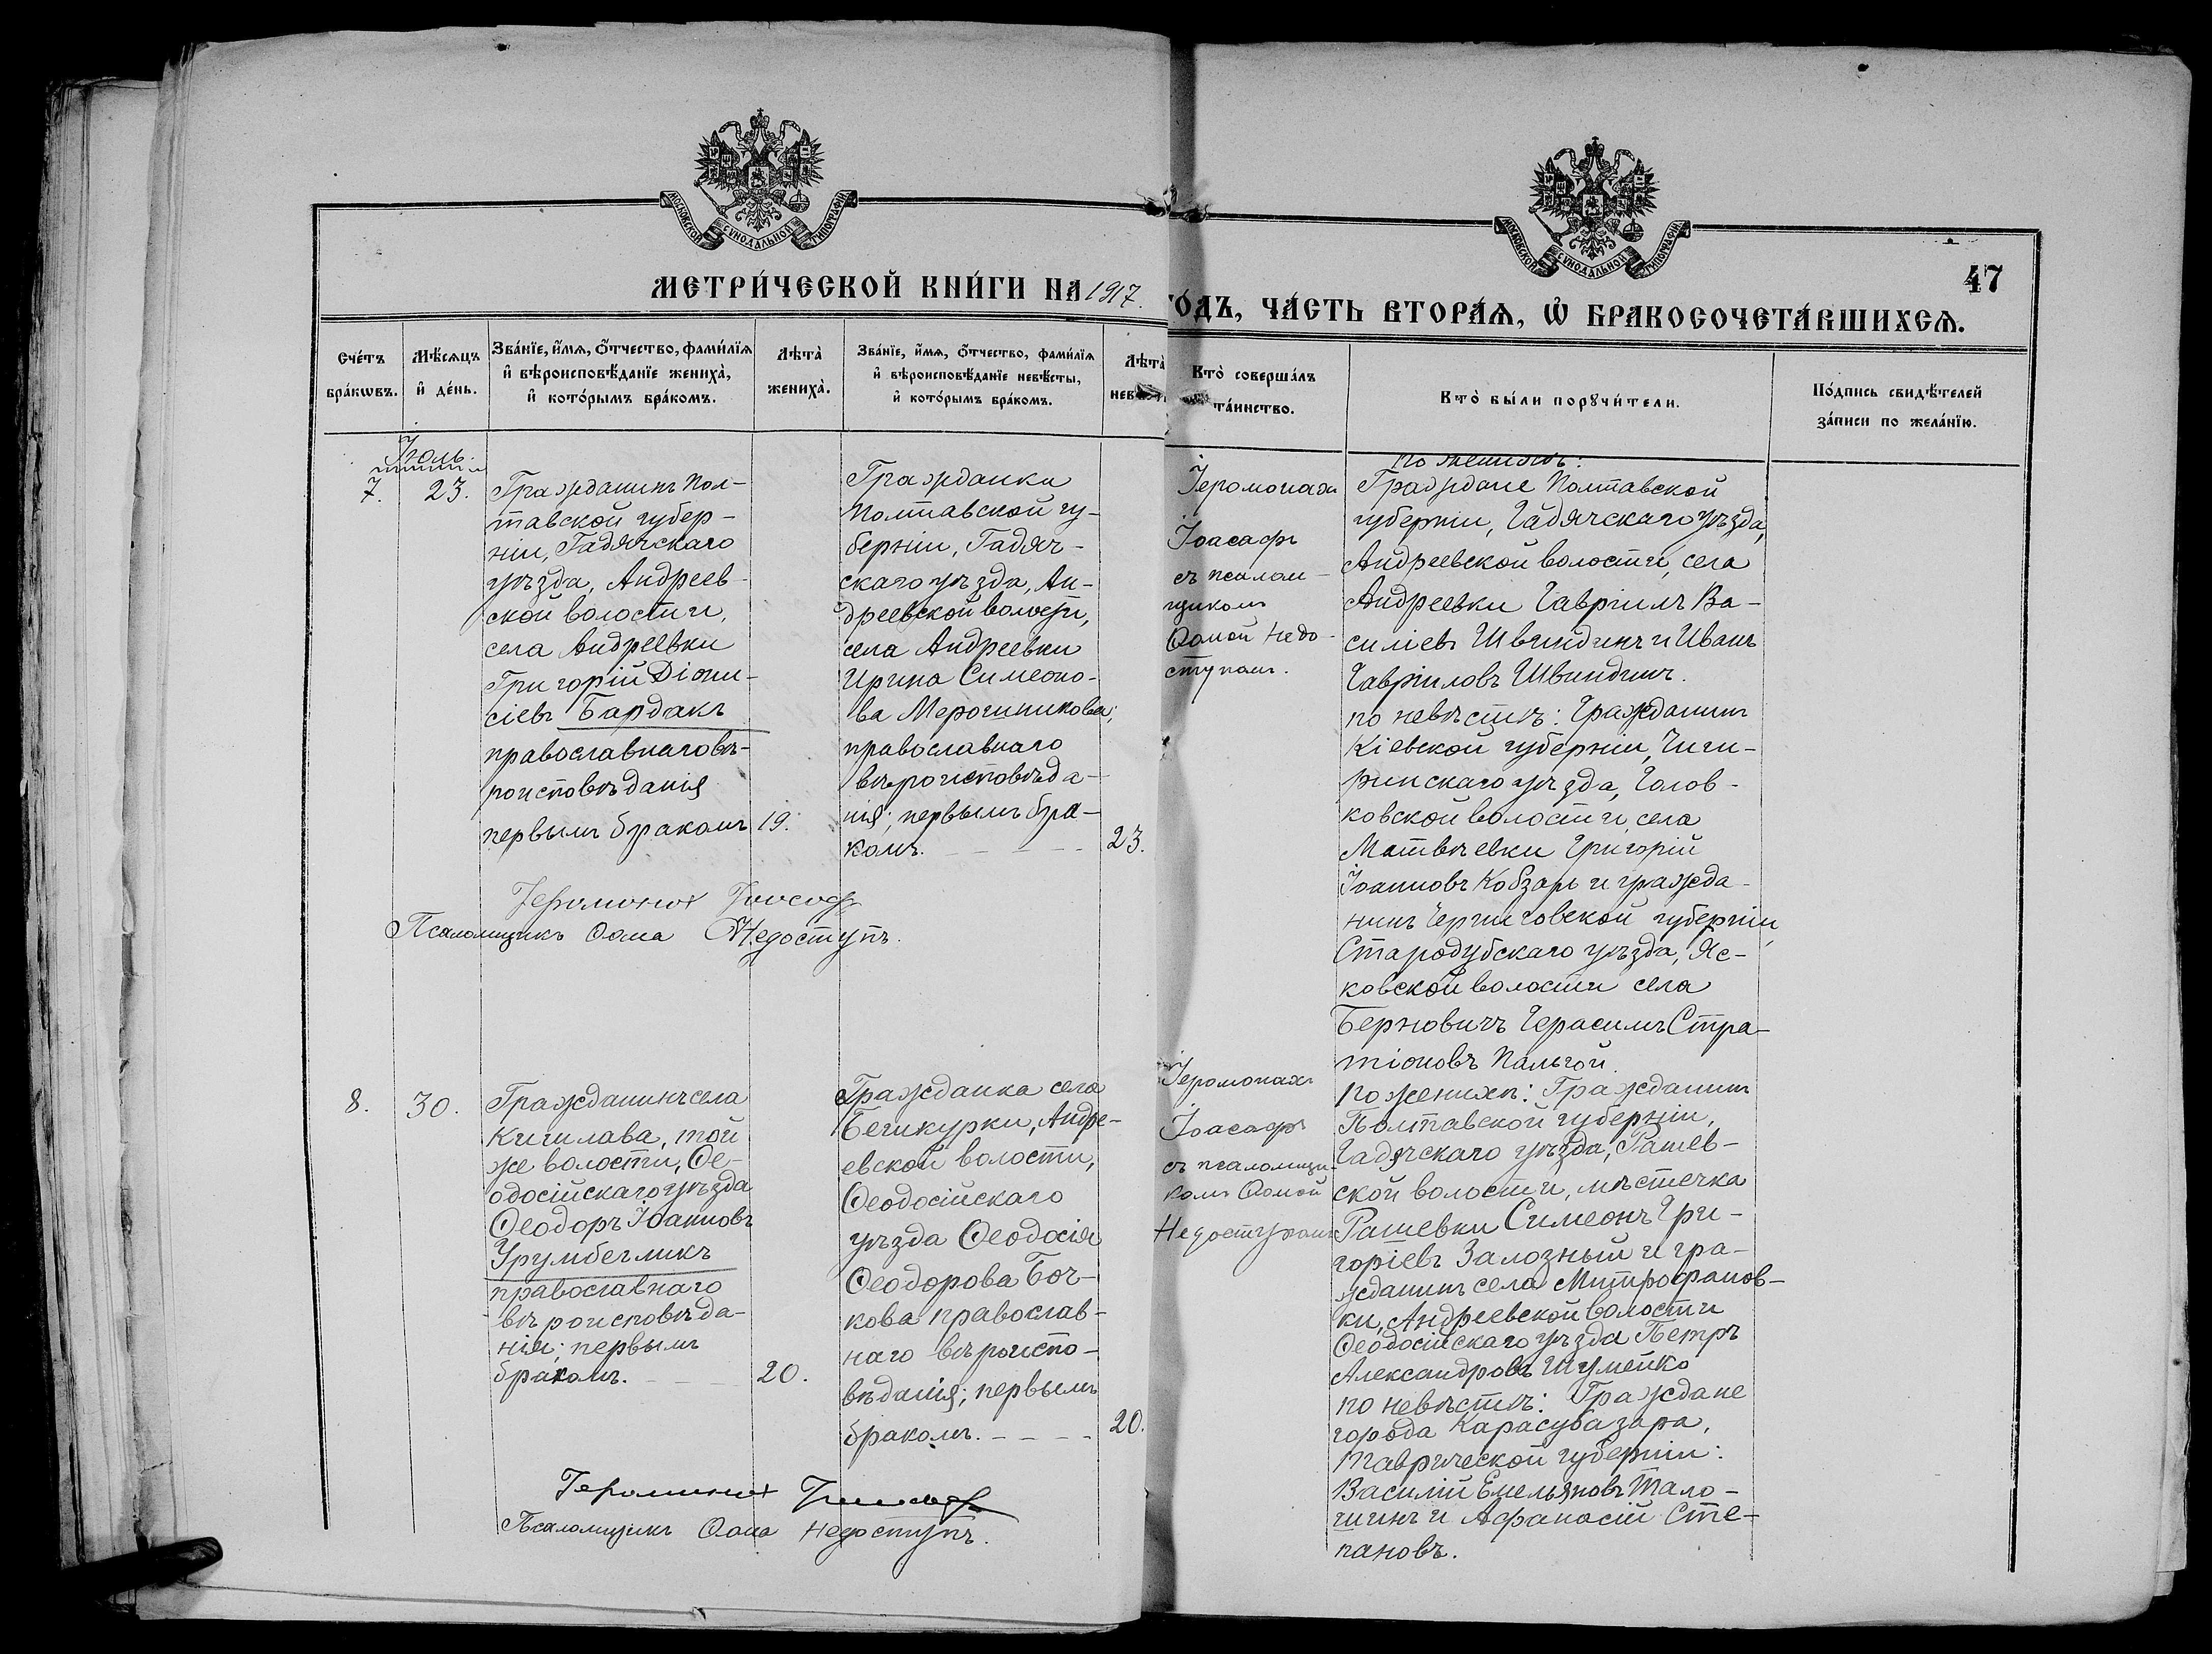 МОСКОВСКОЙ СУНОДАЛЬНОЙ ТИПОГРАФІИ
МОСКОВСКОЙ СУНОДАЛЬНОЙ ТИПОГРАФІИ
47
МЕТРИ́ЧЕСКОЙ КНИ́ГИ НА 1917.
ГО́ДЪ, ЧА́СТЬ ВТОРА́Ѧ, Ѡ҆ БРАКОСОЧЕТА́ВШИХСѦ.
Сче́тъ
бра́кѡвъ.
Мѣ́сяцъ
и҆ де́нь.
Зва́нїе, и҆́мя, ѻ҆́тчество, фами́лїя
и҆ вѣроисповѣ́данїе жениха̀,
и҆ кото́рымъ бра́комъ.
Лѣта̀
жениха̀.
Зва́нїе, и҆́мя, ѻ҆́тчество, фами́лїя
и҆ вѣроисповѣ́данїе невѣ́сты,
и҆ кото́рымъ бра́комъ.
Лѣта̀
Кто̀ соверша́лъ
та́инство.
Кто̀ бы́ли порꙋчи́тели.
По́дпись свидѣ́телей
за́писи по жела́нїю.
Іюль.
7.
23.
Гражданинъ Пол-
тавской губер-
ніи, Гадячскаго
уѣзда, Андреев-
ской волости,
села Андреевки
Григорій Діони-
сіевъ Бардакъ
православнаго вѣ-
роисповѣданія
первымъ бракомъ
19.
Гражданка
Полтавской гу-
берніи, Гадяч-
скаго уѣзда, Ан-
дреевской волости,
села Андреевки
Ирина Симеоно-
ва
православнаго
вѣроисповѣда-
нія; первымъ бра-
комъ.
23.
Іеромонахъ
Іоасафъ
съ псалом-
щикомъ
Ѳомой Недо-
ступомъ.
по женихѣ:
Граждане Полтавской
губерніи, Гадячскаго уѣзда,
Андреевской волости, села
Андреевки Гавріилъ Ва-
силіевъ Швиндинъ и Иванъ
Гавріиловъ Швиндинъ.
по невѣстѣ: Гражданинъ
Кіевской губерніи, Чиги-
ринскаго уѣзда, Голов-
ковской волости, села
Матвѣевки Григорій
Іоанновъ Кобзарь и гражда-
нинъ Черниговской губерніи,
Стародубскаго уѣзда, Яс-
ковской волости села
Берновичъ Герасимъ Стра-
тіоновъ Пальгой.
Іеромонах Іоасаф
Псаломщикъ Ѳома Недоступъ.
8.
30.
Гражданинъ села
Кишлава, той
же волости, Ѳе-
одосійскаго уѣзда
Ѳеодоръ Іоанновъ
Урумбегликъ
православнаго
вѣроисповѣда-
нія; первымъ
бракомъ.
20.
Гражданка села
Бешкурки, Андре-
евской волости,
Ѳеодосійскаго
уѣзда Ѳеодосія
Ѳеодорова Боч-
кова православ-
наго вѣроиспо-
вѣданія; первымъ
бракомъ.
20.
Іеромонахъ
Іоасафъ
съ псаломщи-
комъ Ѳомой
Недоступомъ
По женихѣ: Гражданинъ
Полтавской губерніи,
Гадячскаго уѣзда, Рашев-
ской волости, мѣстечка
Рашевки Симеонъ Гри-
горіевъ Залозный и гра-
жданинъ села Митрофанов-
ки, Андреевской волости
Ѳеодосійскаго уѣзда Петръ
Александровъ Шумейко
по невѣстѣ: Граждане
города Карасубазара,
Таврической губерніи:
Василій Емельяновъ Мало-
шинъ и Афанасій Сте-
пановъ.
Іеромонах Іоасаф
Псаломщикъ Ѳома Недоступъ.